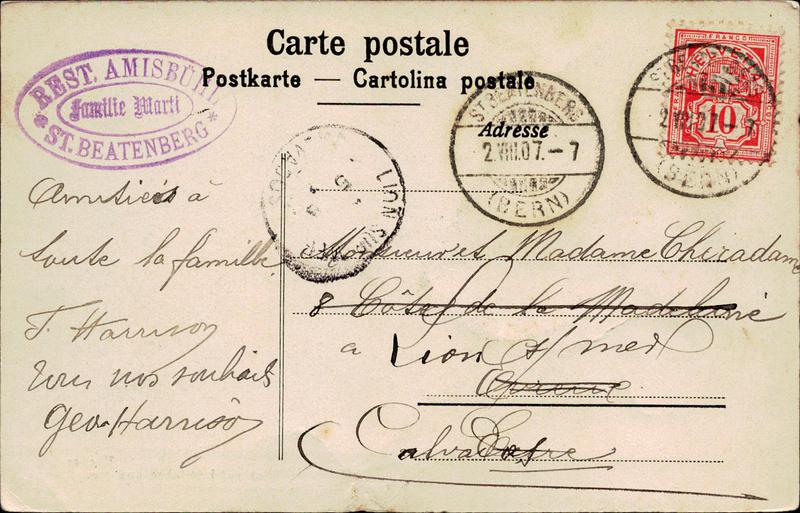 Carte postale
Postkarte — Cartolina postale
REST. AMISBÜ
Familie Marti
* ST. BEATENBERG *
ST. BEATENBERG
2.VIII.07.-7
(BERN)
Adresse
FRANCO
HELVETIA
10
(BERN)
LION SUR MER
Amitiés à
toute la famille
T. Harrison
tous nos souhaits
Geo Harrison
Monsieur et Madame Chiradame
8 Côte de la Madeleine
a Lion s/ mer
Evreux
Calvados
Eure